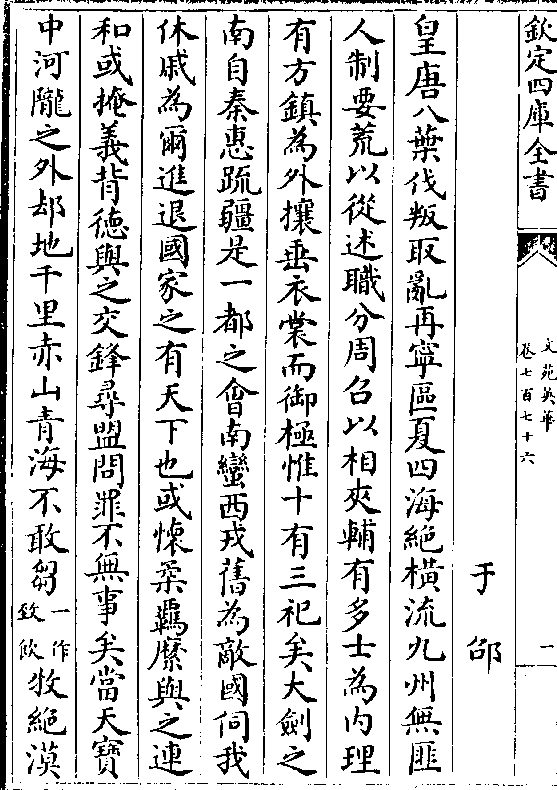 欽定四庫全書
文苑英華
卷七百七十六
二
于邵
皇唐八葉伐叛取亂再寧區夏四海絶橫流九州無匪
人制要荒以從述職分周召以相夾輔有多士為内理
有方鎮為外攘垂衣裳而御極惟十有三祀矣大劍之
南自秦惠疏疆是一都之會南蠻西戎舊為敵國伺我
休戚為爾進退國家之有天下也或懷柔羈縻與之連
和或掩義背德與之交鋒尋盟問罪不無事矣當天寶
中河隴之外却地千里赤山青海不敢芻一作致飲牧絶漠